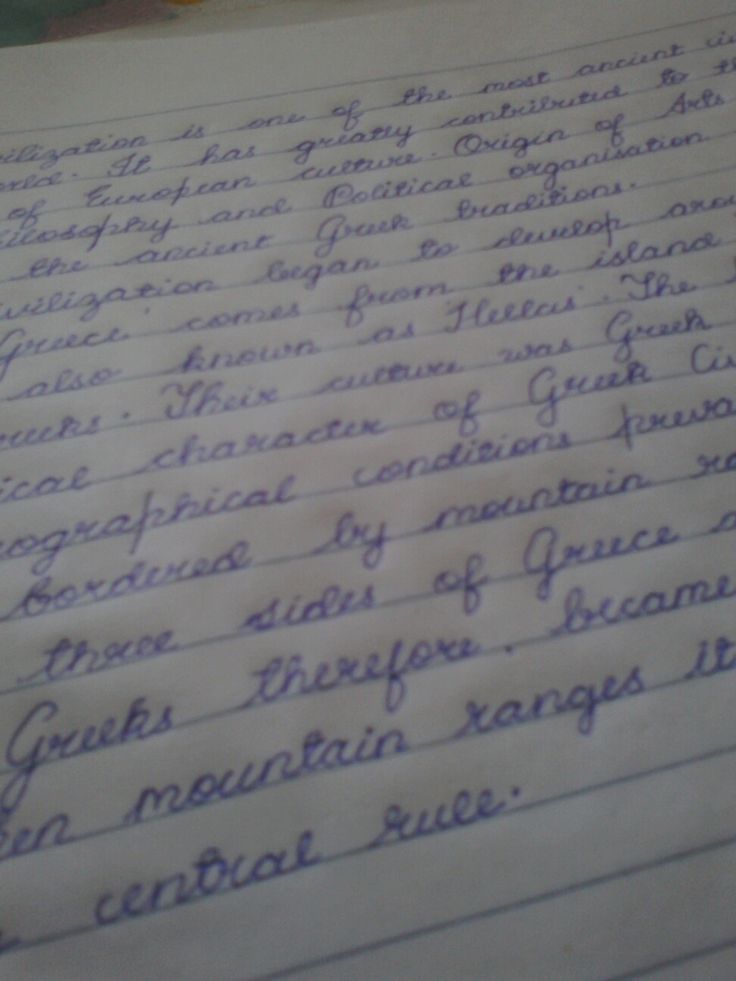 ilization is one of the most ancient ci
orld. It has greatly contributed to th
of European culture. Origin of Arts
ilosophy and Political organisation
the ancient Greek traditions.
ivilization began to develop arou
Greece' comes from the island
also known as 'Hellas'. The
reeks. Their culture was Greek
ical character of Greek Ci
eographical conditions preva
bordered by mountain ra
three sides of Greece a
Greeks therefore. became
een mountain ranges it
central rule.